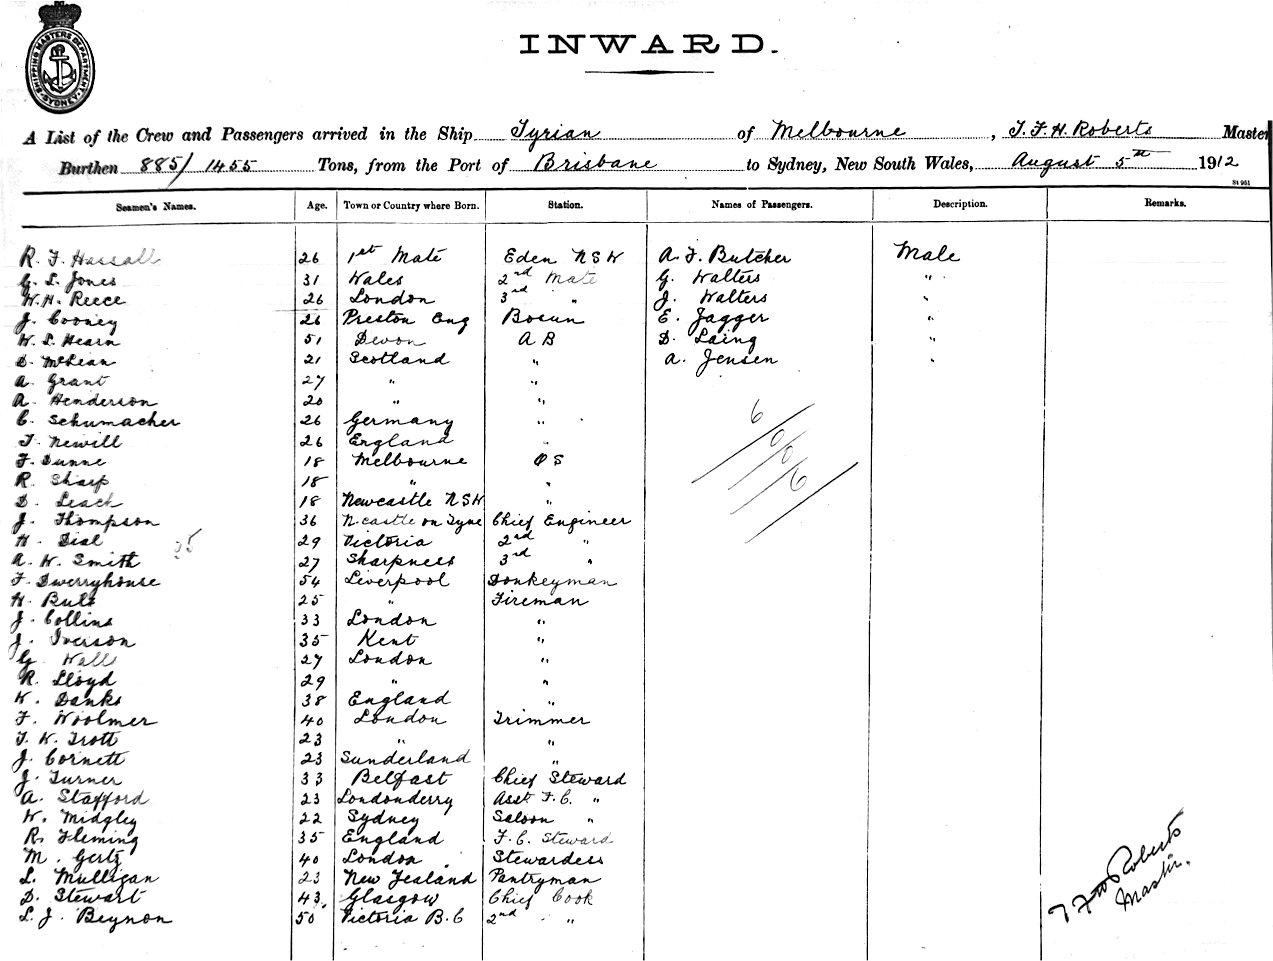 SHIPPING MASTERS DEPARTMENT SYDNEY
INWARD.
A List of the Crew and Passengers arrived in the Ship Tyrian of Melbourne, T. F. H. Roberts Master
Burthen 885/1455 Tons, from the Port of Brisbane to Sydney, New South Wales, August 5th 1912
Seamen's Names. Age. Town or Country where Born. Station. Names of Passengers. Description. Remarks.
R. F. Hassall 26 1st Mate Eden NSW A. F. Butcher Male
G. L. Jones 31 Wales 2nd Mate G. Walters "
W. H. Reece 26 London 3rd " J. Walters "
J. Cooney 26 Preston Eng Bosun E. Jagger "
W. L. Hearn 51 Devon A B D. Laing "
D. McLean 21 Scotland " A. Jensen "
A. Grant 27 " "
A. Henderson 20 " "
C. Schumacher 26 Germany "
T. Newill 26 England "
F. Dunne 18 Melbourne O S
R. Sharp 18 " "
D. Leach 18 Newcastle NSW "
J. Thompson 36 N.castle on Tyne Chief Engineer
H. Dial 29 Victoria 2nd "
A. W. Smith 27 Sharpness 3rd "
F. Dwerryhouse 54 Liverpool Donkeyman
H. Bult 25 " Fireman
J. Collins 33 London "
J. Iverson 35 Kent "
G. Wall 27 London "
R. Lloyd 29 " "
W. Danks 38 England "
F. Woolmer 40 London Trimmer
T. W. Trott 23 " "
J. Cornett 23 Sunderland "
J. Turner 33 Belfast Chief Steward
A. Stafford 23 Londonderry Asst F.C. "
W. Midgley 22 Sydney Saloon "
R. Fleming 35 England F.C. Steward
M. Gertz 40 London Stewardess
L. Mulligan 23 New Zealand Pantryman
D. Stewart 43 Glasgow Chief Cook
L. J. Beynon 50 Victoria B.C 2nd "
6
0
0
6
35
Roberts
Master.